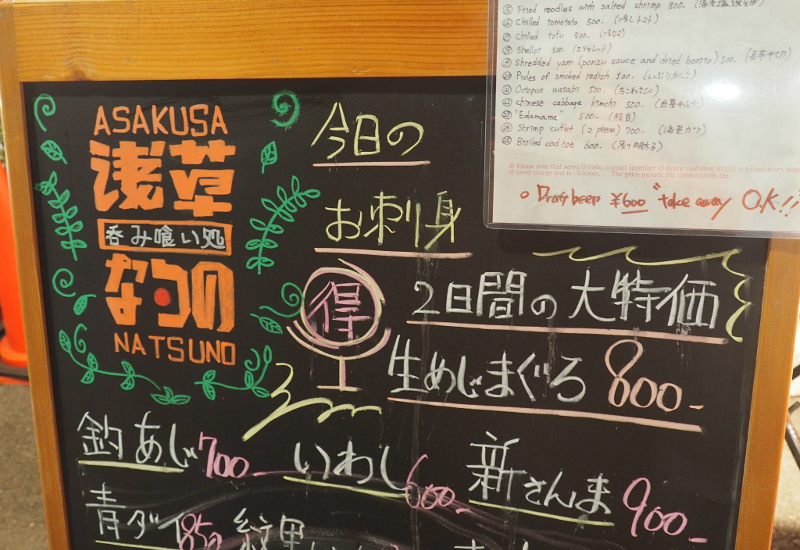 ASAKUSA
浅草
呑み喰い処
なつの
NATSUNO
今日の
お刺身
得 2日間の大特価
生めじまぐろ 800-
釣あじ 700- いわし 600- 新さんま 900-
青ダイ 850 紋甲
⑮ Fried noodles with salted shrimp 800-
⑯ Chilled tomatoto 500- (冷しトマト)
⑰ Chilled tofu 500-
⑱ Shallot 500- (エシャレット)
⑲ Shredded yam (ponzu sauce and dried bonito) 500-
⑳ Pickles of smoked radish 500- (いぶりがっこ)
㉑ Octopus wasabi 500- (たこわさび)
㉒ chinese cabbage kimchi 500- (白菜キムチ)
㉓ "Edamame" 500- (枝豆)
㉔ Shrimp cutlet (2 piece) 700- (海老カツ)
㉕ Broiled cod roe 600-
○ Drang beer ¥600 "take away O.K!!